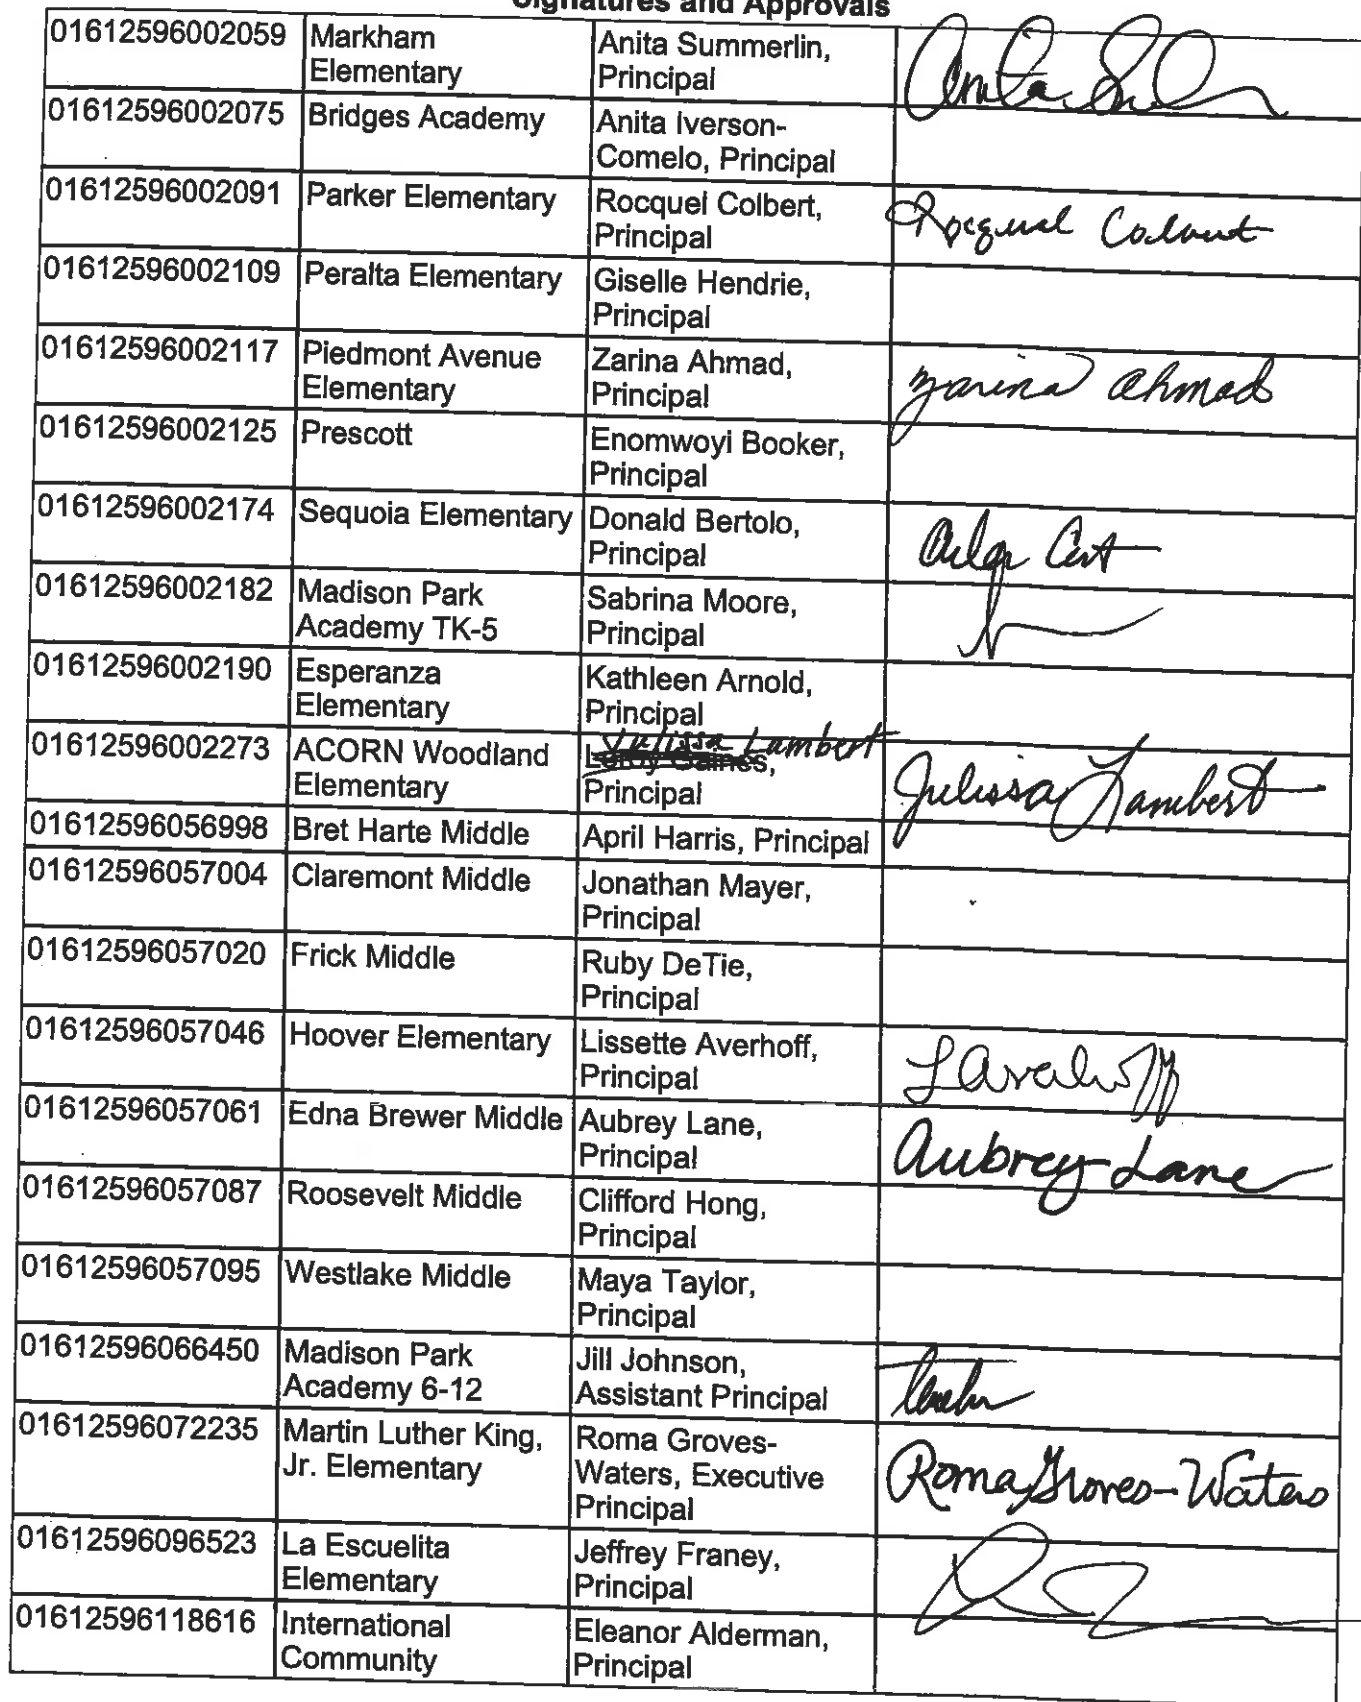 Signatures and Approvals
01612596002059 Markham Elementary Anita Summerlin, Principal
01612596002075 Bridges Academy Anita Iverson-Comelo, Principal
01612596002091 Parker Elementary Rocquel Colbert, Principal Rocquel Colbert
01612596002109 Peralta Elementary Giselle Hendrie, Principal
01612596002117 Piedmont Avenue Elementary Zarina Ahmad, Principal Zarina Ahmad
01612596002125 Prescott Enomwoyi Booker, Principal
01612596002174 Sequoia Elementary Donald Bertolo, Principal
01612596002182 Madison Park Academy TK-5 Sabrina Moore, Principal
01612596002190 Esperanza Elementary Kathleen Arnold, Principal
01612596002273 ACORN Woodland Elementary Julissa Lambert Leroy Gaines, Principal Julissa Lambert
01612596056998 Bret Harte Middle April Harris, Principal
01612596057004 Claremont Middle Jonathan Mayer, Principal
01612596057020 Frick Middle Ruby DeTie, Principal
01612596057046 Hoover Elementary Lissette Averhoff, Principal
01612596057061 Edna Brewer Middle Aubrey Lane, Principal Aubrey Lane
01612596057087 Roosevelt Middle Clifford Hong, Principal
01612596057095 Westlake Middle Maya Taylor, Principal
01612596066450 Madison Park Academy 6-12 Jill Johnson, Assistant Principal
01612596072235 Martin Luther King, Jr. Elementary Roma Groves-Waters, Executive Principal Roma Groves-Waters
01612596096523 La Escuelita Elementary Jeffrey Franey, Principal
01612596118616 International Community Eleanor Alderman, Principal